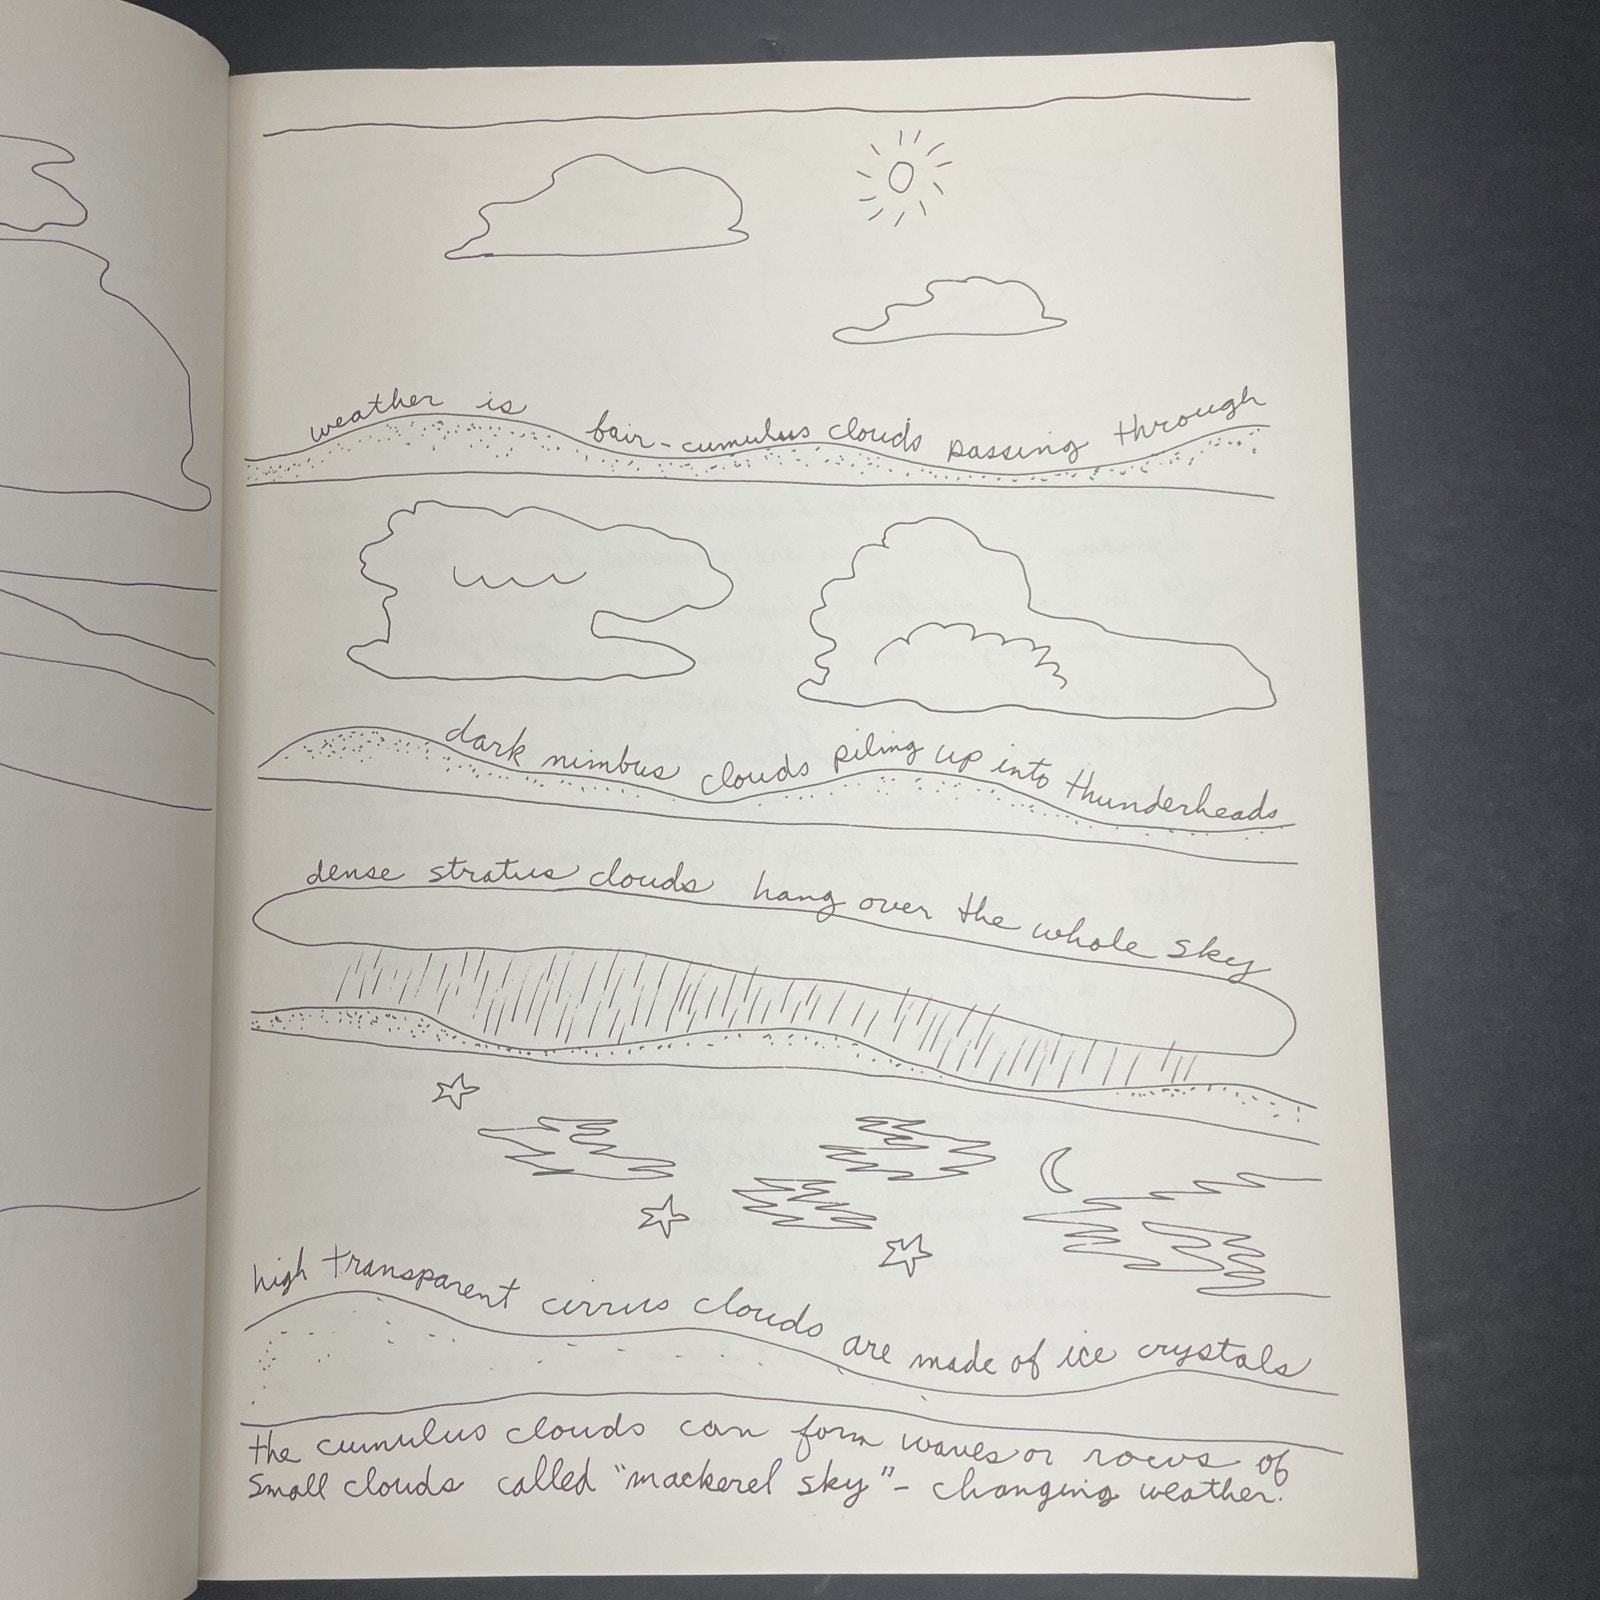 weather is fair - cumulus clouds passing through
dark nimbus clouds piling up into thunderheads
dense stratus clouds hang over the whole sky
high transparent cirrus clouds are made of ice crystals
the cumulus clouds can form waves or rows of
small clouds called "mackerel sky" - changing weather.